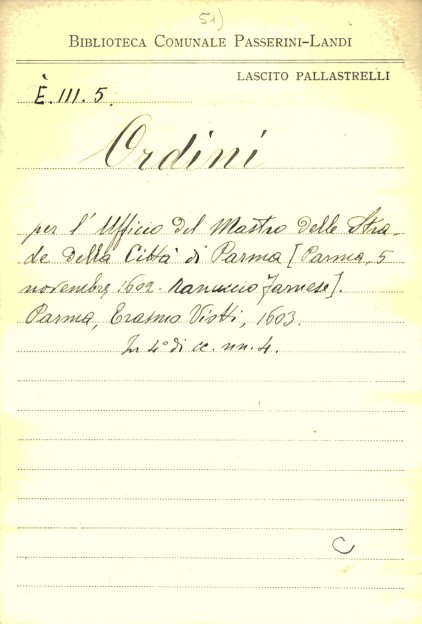 51)
BIBLIOTECA COMUNALE PASSERINI-LANDI
LASCITO PALLASTRELLI
È. III. 5.
Ordini
per l' Ufficio del Mastro delle Stra-
de della Città di Parma [Parma, 5
novembre, 1602. Ranuccio Farnese].
Parma, Erasmo Viotti, 1603.
In 4° di cc. nn. 4.
C